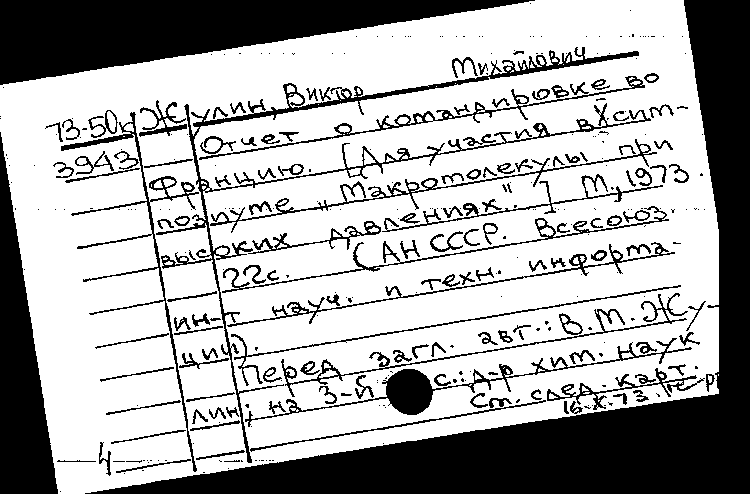 73-50к Жулин, Виктор Михайлович
3943 Отчет о командировке во
Францию. [Для участия в X сим-
позиуме „Макромолекулы при
высоких давлениях".] М., 1973.
22с. (АН СССР. Всесоюз.
ин-т науч. и техн. информа-
ции).
Перед загл. авт.: В.М. Жу-
лин; на 3-й с.: д-р хим. наук
Ст. след. карт.
16.X.73.
4